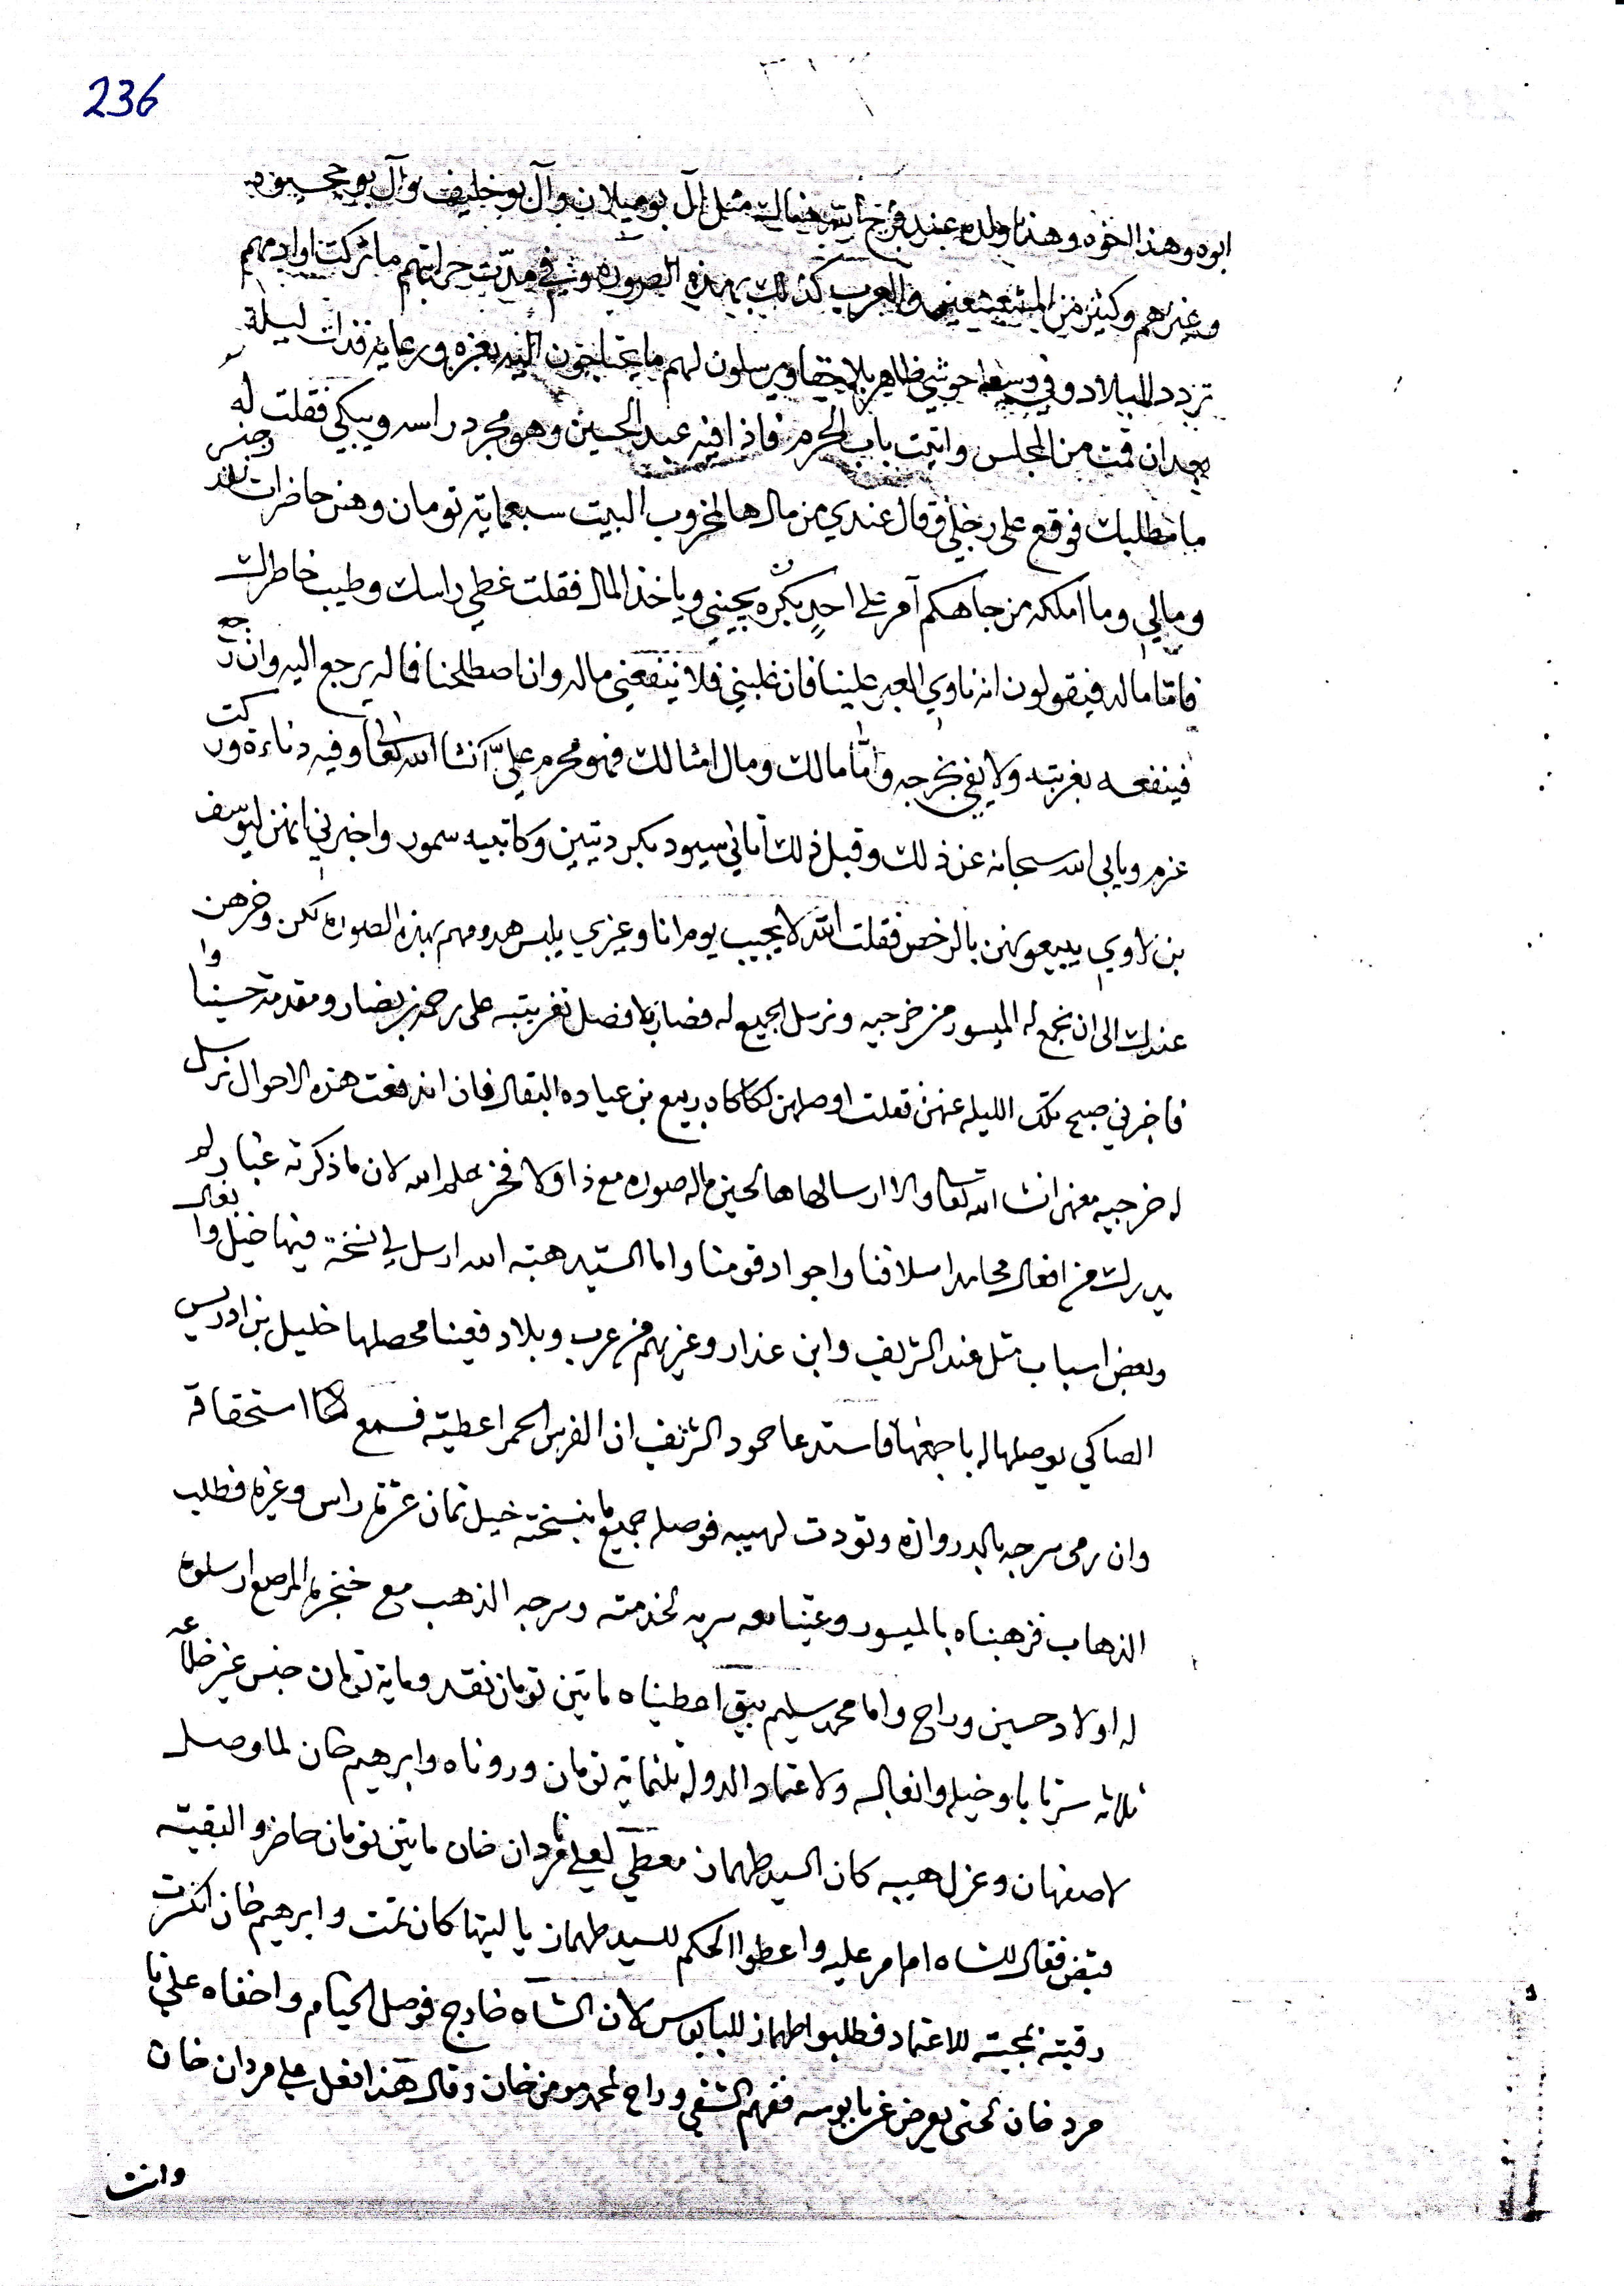 236
ابوه وهذا اخوه وهذا ولده عند فرج الله هناك مثل آل بو ميلان وآل بو خليف وآل بو
وغيرهم وكثير من المشعشعين والعرب كذلك بهذه الصوره وثم في مدت حرابتهم ما تركت اوادمهم
تردد للبلاد وفي وسط حوشي ظاهر بلا خفا ويرسلون لهم ما يحتاجون اليه بعزه ورعايه فذات ليلة
بعد ان قمت من المجلس واتيت باب الحرم فاذا فيه عبد الحسين وهو مجرد راسه ويبكي فقلت له
ما مطلبك فوقع على رجلي وقال عندي من مال هالمخروب البيت سبعمايه تومان وهن حاضرات نقد وجنس
ومالي وما املكه من جاهكم آمر على احدٍ بكره يجيني وياخذ المال فقلت غطي راسك وطيب خاطرك
فاما ماله فيقولون انه ناوي العبر علينا فان غلبني فلا ينفعني ماله وان اصطلحنا فماله يرجع اليه وان رجع
فينفعه بغربته ولا يفي بخرجه واما مالك ومال امثالك فهو محرم عليّ انشا الله تعالى وفيه دناءة وركت
عزم ويابى الله سبحانه عن ذلك وقبل ذلك اتاني سيود بكرديتين وكاتبيه سمور واخبرني انهن ليوسف
بن لاوي يبيعونهن بالرخص فقلت الله لا يجيب يوم انا وغيري يلبس هدومهم بهذه الصوره لكن وخرهن
عندك الى ان نجمع له الميسور من خرجيه ونرسل الجميع له فصار بلا فصل تغربته على رحمة بن بضار ومقدمة حسينا وا
فاخبرني صبح تلك الليله عنهن فقلت اوصلهن لكاكاه ربيع بن عياده البقال فان اندفعت هذه الاحوال نرسل
له خرجيه معهن انشا الله تعالى والا ارسالها هالحين ماله صوره مع ذا ولا فخر بحلم الله لان ما ذكرته غبار لم
يدرك من افعال محامد اسلافنا واجواد قومنا واما السيد هبة الله ارسل لي نسخة فيها خيل وانغال
وبعض اسباب مثل عند الشريف وابن عذار وغيرهم من عرب وبلاد فعينا محصلها خليل بن ادريس
الصاكي يوصلها له باجمعها فاستدعا حمود الشريف ان الفرس الحمرا عطيته فسمع استحقاقه
وان رمى سرجه بالدروازه وتودت لهيبه فوصله جميع ما بنسخته خيل ثمان عشر راس وغيره فطلب
الذهاب فزهبناه بالميسور وعينا معه سربه لخدمته وسرجه الذهب مع خنجره المرصع ارسلوه
له اولاد حسين وراح واما محمد سليم بيق اعطيناه مايتين تومان نقد ومايه تومان جنس غير خلاعه
ثلاثه سرتا با وخيله وانغاله ولاعتماد الدوله ثلثمايه تومان وروناه وابرهيم خان لما وصل
لاصفهان وعزل هيبه كان السيد طهماز معطي لعلي مردان خان مايتين تومان حاضر والبقيه
قبض فقال للشاه ام امر عليه واعطوا الحكم للسيد طهماز يا ليتها كان تمت وابرهيم خان انكسرت
رقبته بمجيته للاعتماد فطلبوا طهماز للبابوس لان الشاه خارج فوصل الخيام واخفاه علي
مرد خان لحتى يعرض عن بابوسه ففهم الشقي وراح لمحمد مومن خان وقال هذا فعل علي مردان خان
وانت